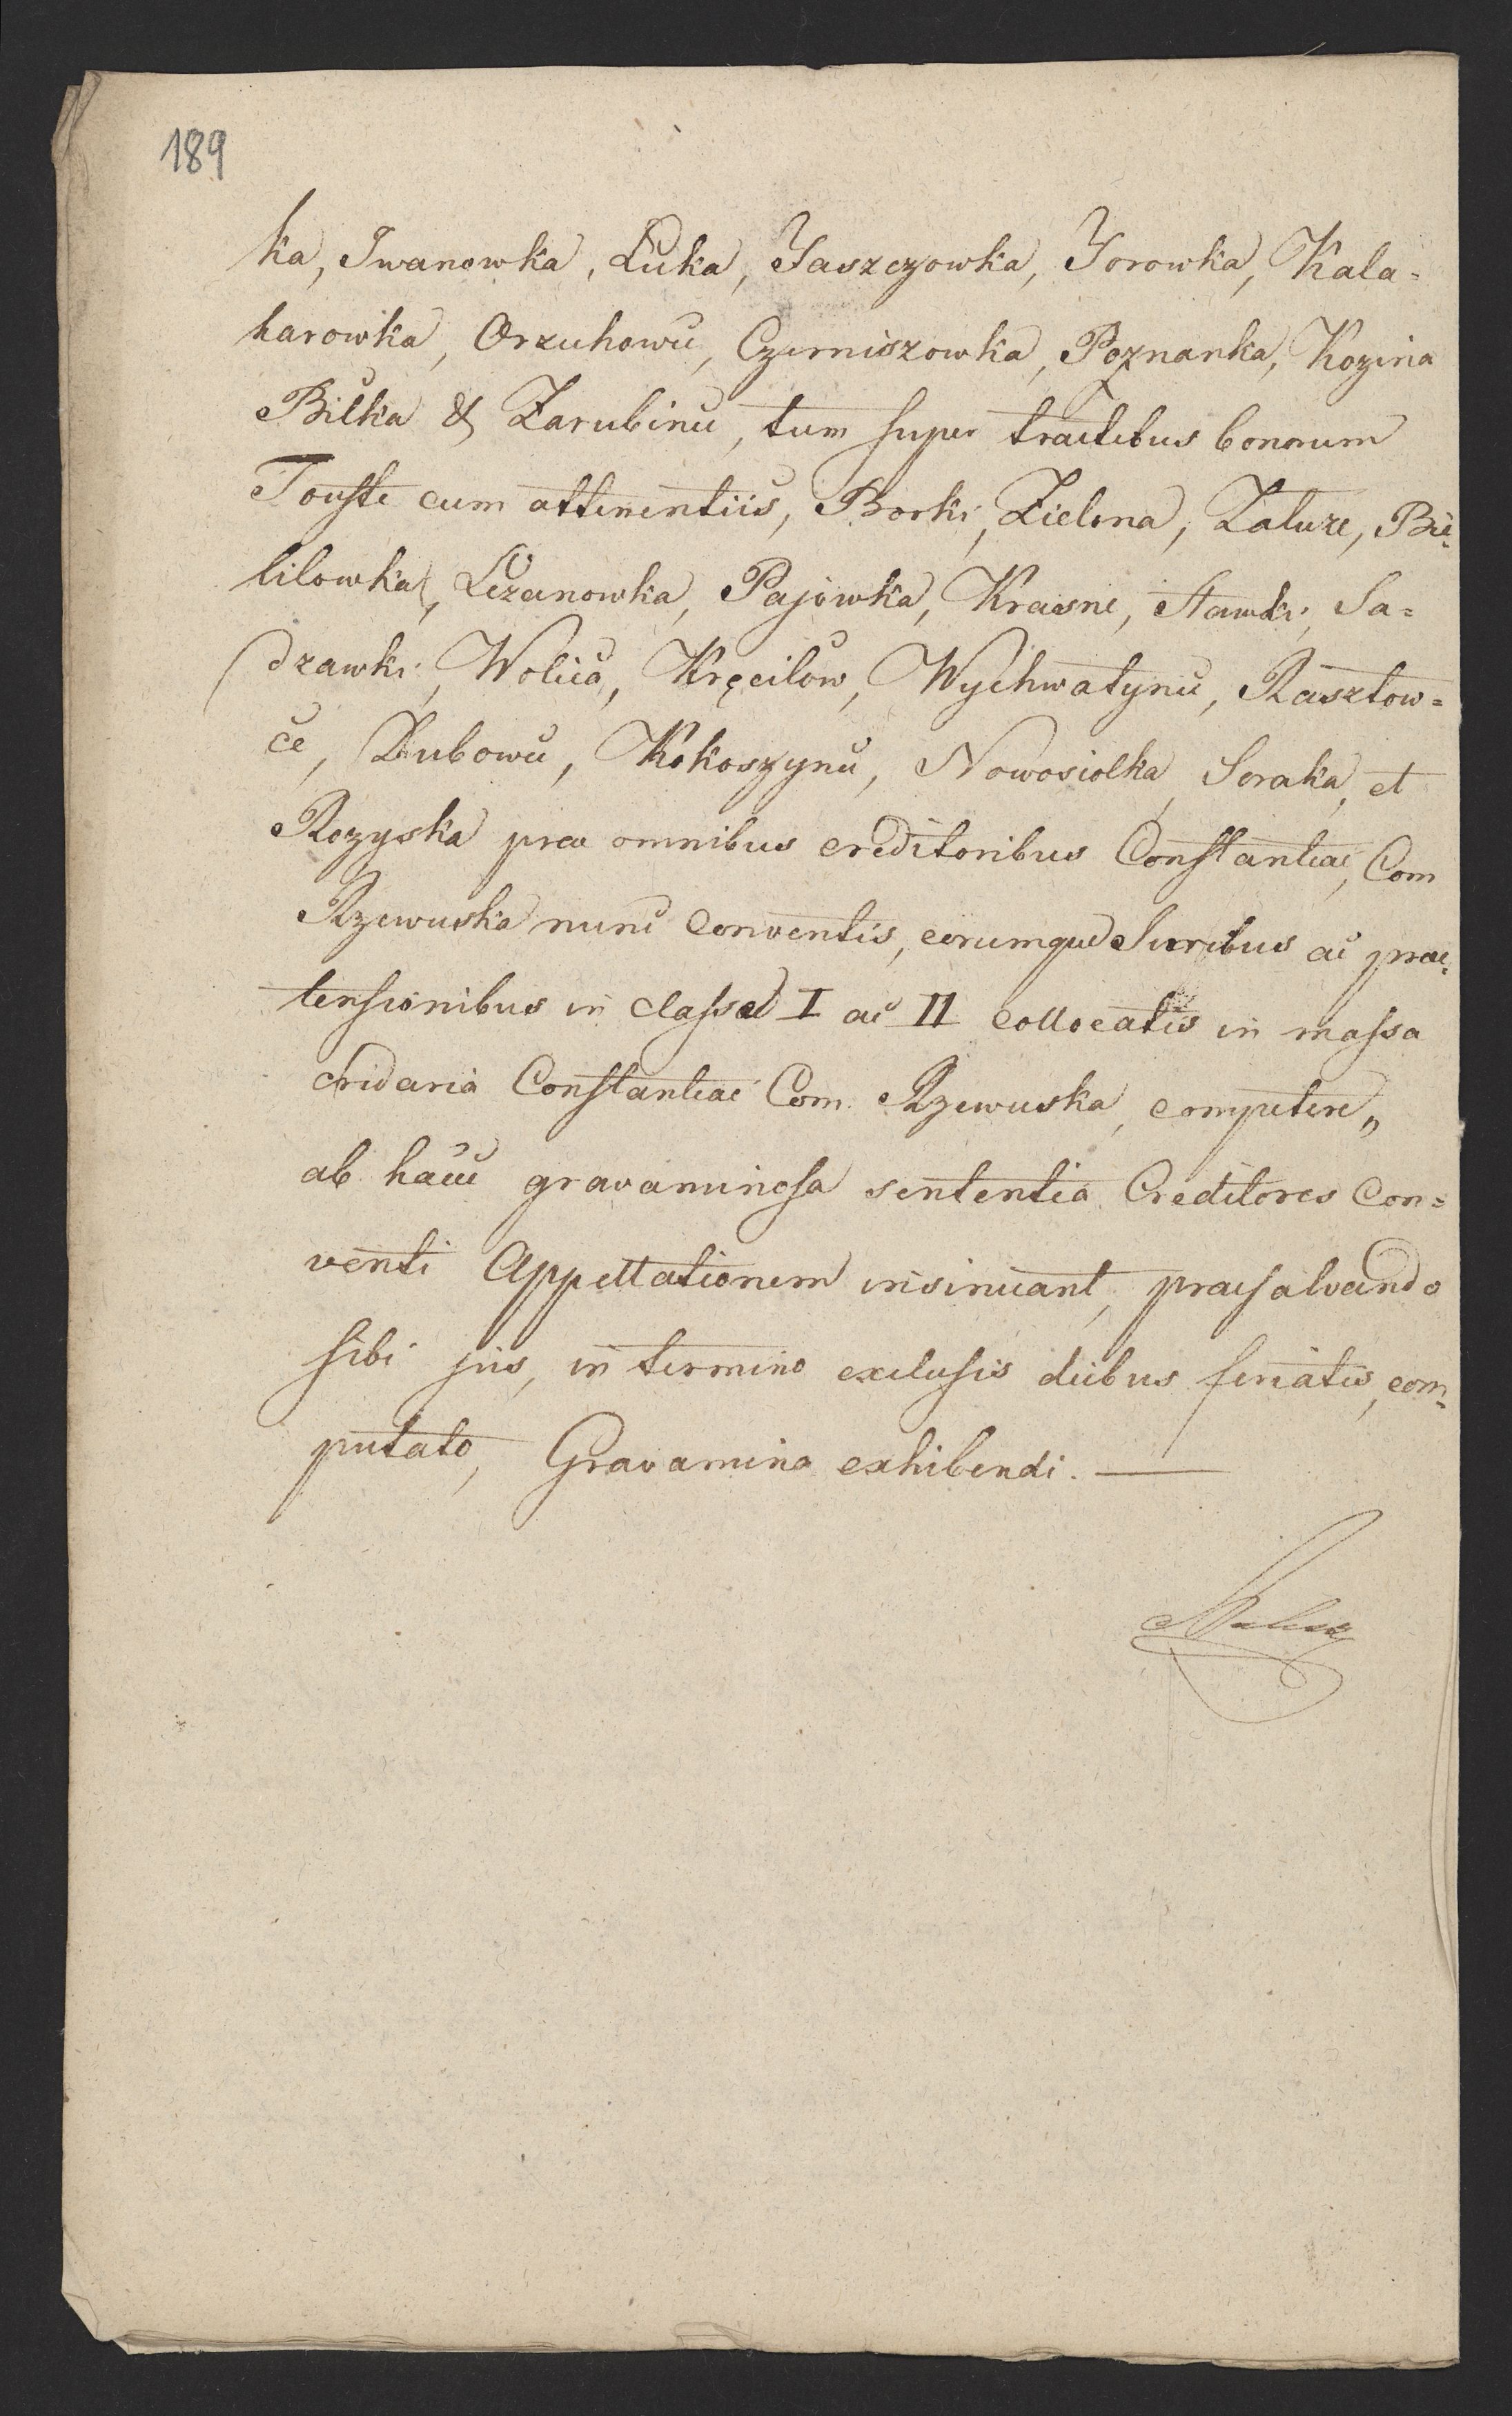 189
ka, Iwanowka, Łuka, Jaszczowka, Jorowka, Kala=
harowka, Orzuhowu, Czerniszowka, Poznanka, Kozina
Bilka & Zarubinu, tum super tractibus bonorum
Touste cum attinentiis, Borki, Zielona, Zaluze, Bie-
lilowka, Lezanowka, Pajowka, Krasne, Stawki, Sa=
dzawki, Wolica, Kręcilow, Wychwatynu, Rasztow=
ce, Dubowu, Kokoszynu, Nowosiolka, Soraka, et
Rozyska prae omnibus creditoribus Constantiae, Com
Rzewuska nunc conventis, eorumque Juribus ac prae-
tensionibus in classe I ac II collocatis in massa
cridaria Constantiae Com. Rzewuska, competere„
ab hacce gravaminosa sententia Creditores Con=
venti Appellationem insinuant, praesalvando
sibi jus, in termino exclusis diebus feriatis, com-
putato, Gravamina exhibendi. —